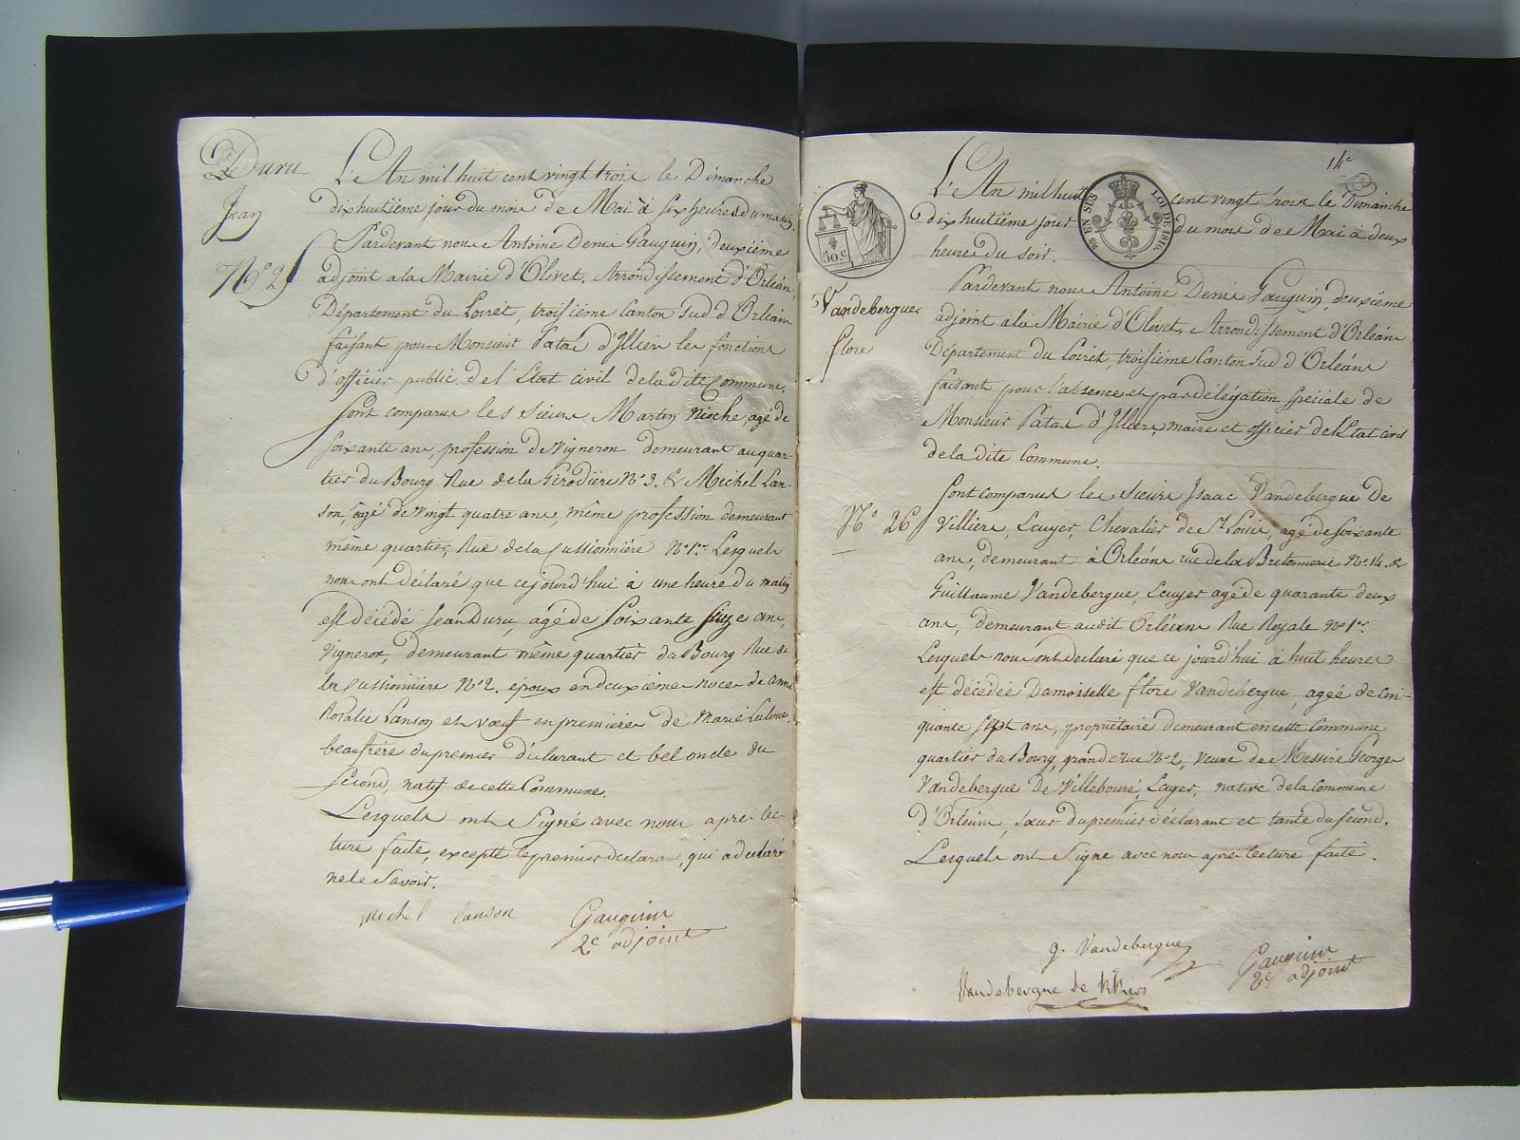 Duru
Jean
N.° 25
L'An mil huit cent vingt trois le Dimanche
dix huitième jour du mois de Mai à six heures du matin.
Pardevant nous Antoine Denis Gauguin, deuxième
adjoint a la Mairie d'Olivet, Arrondissement d'Orléans,
Département du Loiret, troisième Canton Sud d'Orléans
faisant pour Monsieur Patas d'Illiers les fonctions
d'officier public de l'Etat civil de la dite Commune,
Sont comparus les Sieurs Martin Rioche, agé de
soixante ans, profession de Vigneron demeurant au quar-
tier du Bourg Rue de la Gerodière N.° 3. & Michel Lan-
son, agé de vingt quatre ans, même profession demeurant
même quartier, Rue de la Sussionnière N.° 1.er Lesquels
nous ont déclaré que cejourd'hui à une heure du matin
est décédé Jean Duru, agé de Soixante Seize ans,
Vigneron, demeurant même quartier du Bourg Rue de
la Sussionnière N.° 2. époux en deuxième noces de Anne
Rosalie Lanson et veuf en premières de Marie
beaufrère du premier déclarant et bel oncle du
second, natif de cette Commune.
Lesquels ont Signé avec nous après lec-
ture faite, excepté le premier déclarant, qui a déclaré
ne le Savoir.
Michel Lanson Gauguin
2e adjoint
14e
L'An mil huit cent vingt trois le Dimanche
dix huitième jour du mois de Mai à deux
heures du soir.
30 c
LOI DE 1816
EN SUS
Vandebergue
flore
Pardevant nous Antoine Denis Gauguin, deuxième
adjoint a la Mairie d'Olivet, Arrondissement d'Orléans
Département du Loiret, troisième Canton Sud d'Orléans
faisant pour l'absence et par délégation spéciale de
Monsieur Patas d'Illiers, maire et officier de l'Etat civil
de la dite Commune.
N.° 26
Sont comparus les Sieurs Isaac Vandebergue de
Villiers, Ecuyer, Chevalier de St Louis, agé de soixante
ans, demeurant à Orléans rue de la Bretonnerie N.° 14. &
Guillaume Vandebergue, Ecuyer agé de quarante deux
ans, demeurant audit Orléans Rue Royale N.° 1er
Lesquels nous ont déclaré que ce jourd'hui à huit heures
est décédée Damoiselle flore Vandebergue, agée de cin-
quante sept ans, propriétaire demeurant en cette Commune
quartier du Bourg, grande rue N.° 2, veuve de Messire George
Vandebergue De Villebouré, Ecuyer, native de la Commune
d'Orléans, Sœur du premier déclarant et tante du second.
Lesquels ont Signé avec nous après lecture faite.
g. Vandebergue Gauguin
Vandebergue de Villiers 2e adjoint